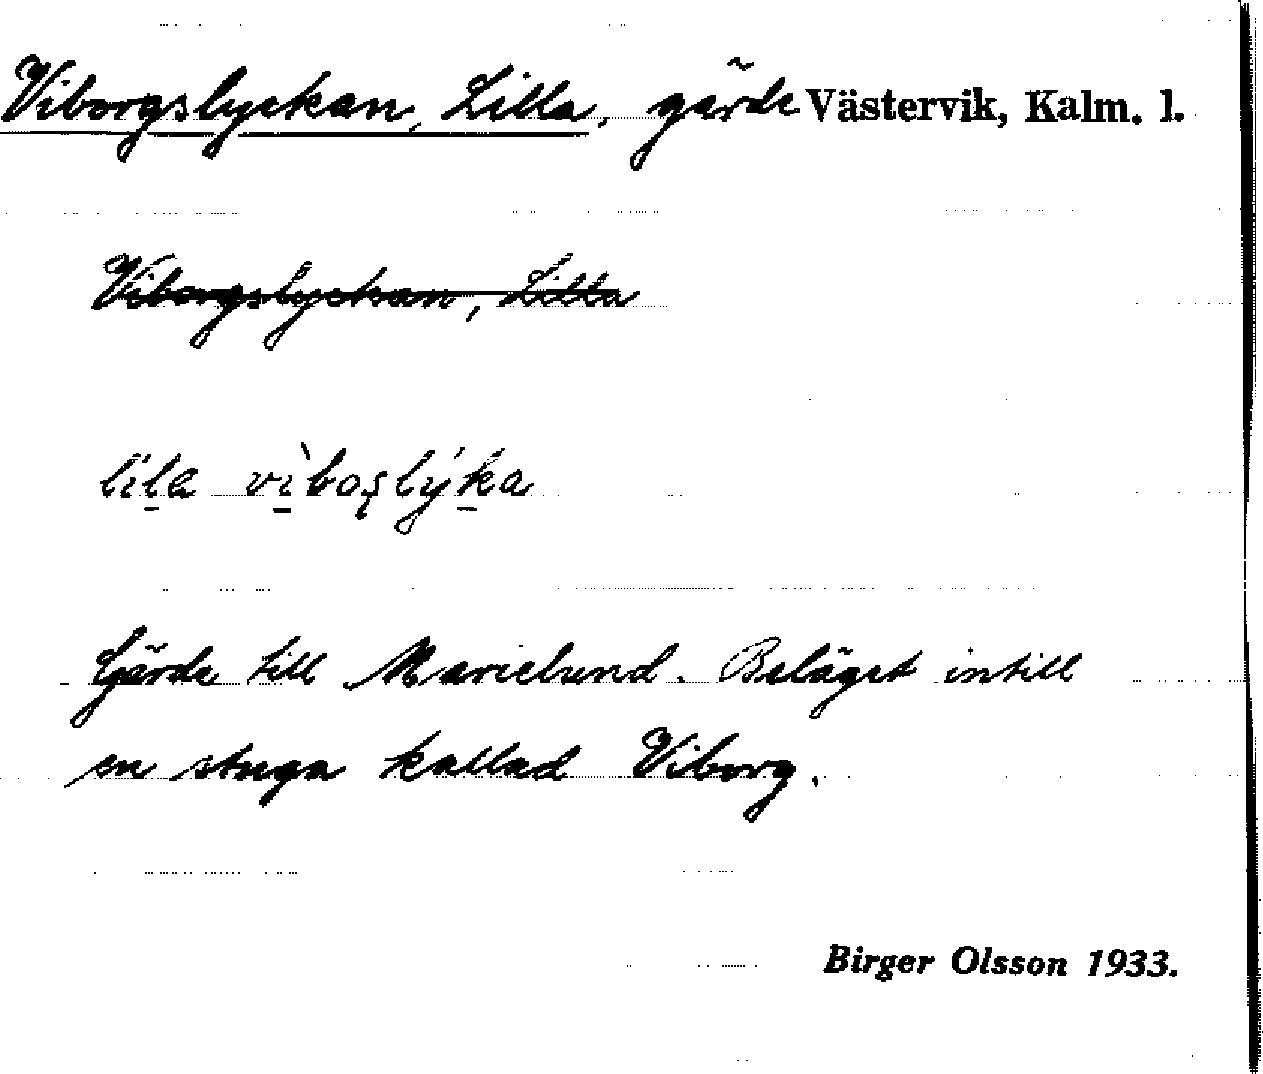 Viborgslyckan, Lilla, gärde Västervik, Kalm. l.
Viborgslyckan, Lilla
lila vìboşlýka
Gärde till Marielund. Beläget intill
en stuga kallad Viborg.
Birger Olsson 1933.